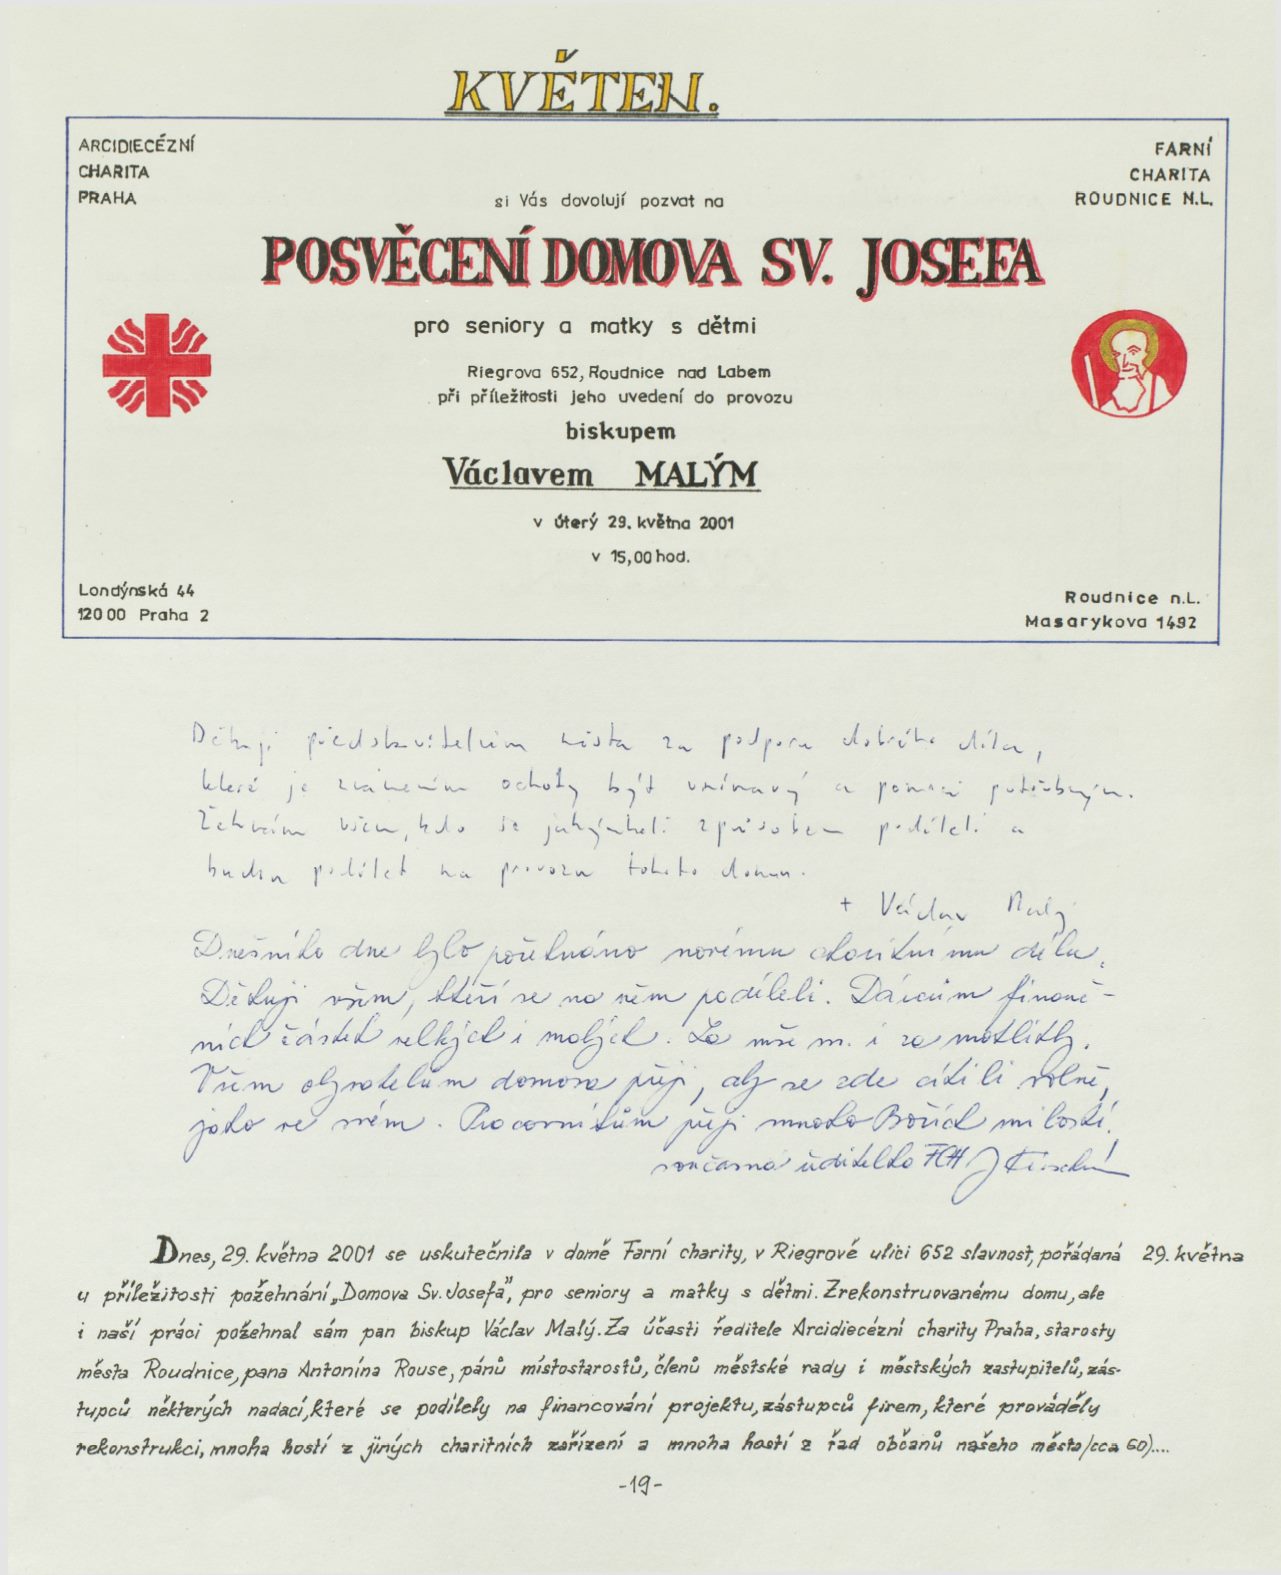 KVĚTEN.
ARCIDIECÉZNÍ
CHARITA
PRAHA
FARNÍ
CHARITA
ROUDNICE N.L.
si Vás dovolují pozvat na
POSVĚCENÍ DOMOVA SV. JOSEFA
pro seniory a matky s dětmi
Riegrova 652, Roudnice nad Labem
při příležitosti jeho uvedení do provozu
biskupem
Václavem MALÝM
v úterý 29. května 2001
v 15,00 hod.
Londýnská 44
120 00 Praha 2
Roudnice n.L.
Masarykova 1492
Děkuji představitelům města za podporu dobrého díla,
které je znamením ochoty být vnímavý a pomoci potřebným.
Žehnám všem, kdo se jakýmkoli způsobem podíleli a
budou podílet na provozu tohoto domu.
+ Václav Malý
Dnešního dne bylo požehnáno novému charitnímu dílu.
Děkuji všem, kteří se na něm podíleli. Dárcům finanč-
ních částek velkých i malých. Za mše sv. i za modlitby.
Všem obyvatelům domova přeji, aby se zde cítili volně,
jako ve svém. Pracovníkům přeji mnoho Božích milostí.
současná ředitelka FCH
Dnes, 29. května 2001 se uskutečnila v domě Farní charity, v Riegrově ulici 652 slavnost, pořádaná 29. května
u příležitosti požehnání „Domova Sv. Josefa", pro seniory a matky s dětmi. Zrekonstruovanému domu, ale
i naší práci požehnal sám pan biskup Václav Malý. Za účasti ředitele Arcidiecézní charity Praha, starosty
města Roudnice, pana Antonína Rouse, pánů místostarostů, členů městské rady i městských zastupitelů, zás-
tupců některých nadací, které se podílely na financování projektu, zástupců firem, které prováděly
rekonstrukci, mnoha hostí z jiných charitních zařízení a mnoha hostí z řad občanů našeho města /cca 60)....
-19-